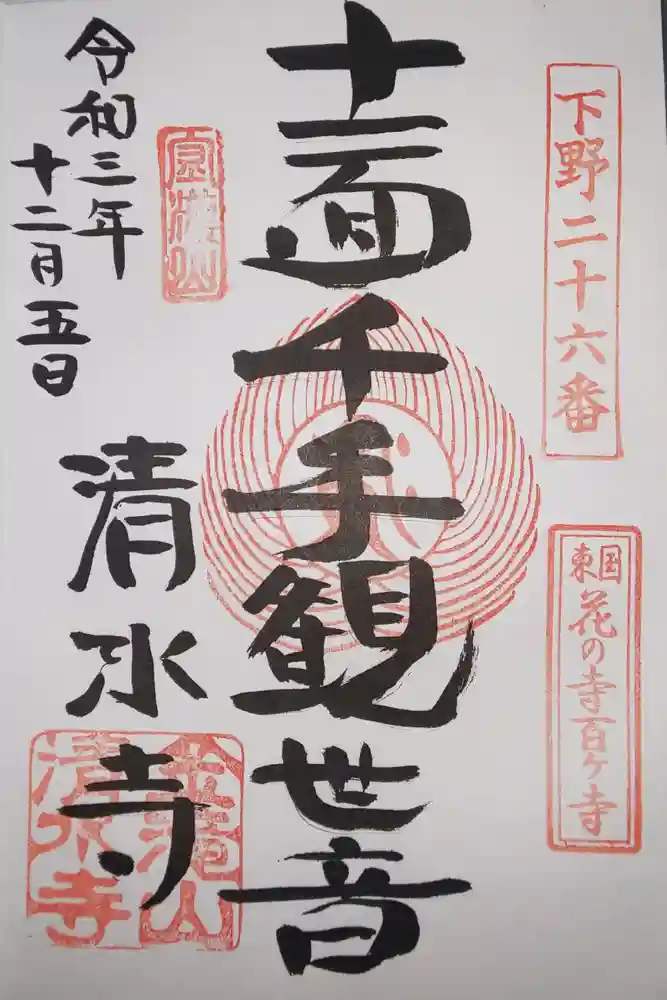 下野二十六番
東国花の寺百ヶ寺
十一面千手観世音
令和三年
十二月五日
清水寺
清水寺